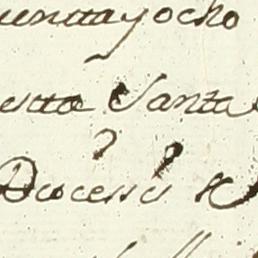 uenttayocho
estta Santa
Diocessis